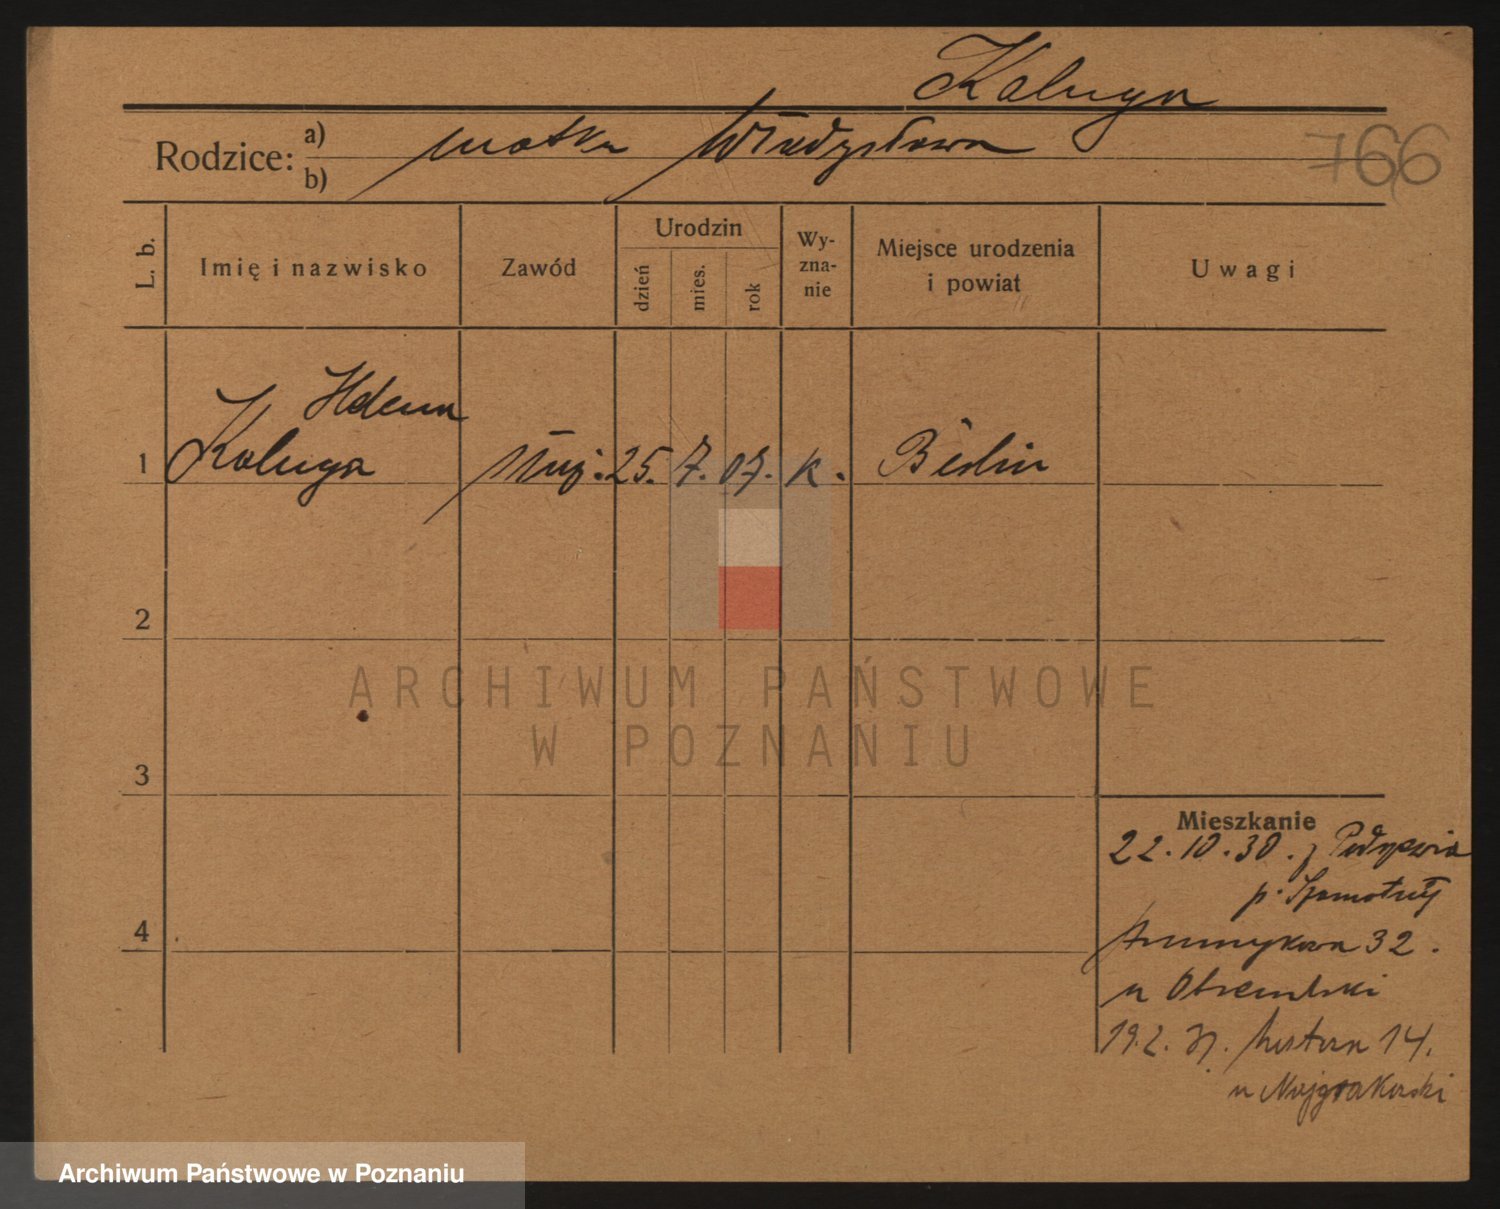 Kaluga
Rodzice:
a) matka Władysława
b)
766
L. b.
Imię i nazwisko
Zawód
Urodzin
dzień
mies.
rok
Wy-
zna-
nie
Miejsce urodzenia
i powiat
Uwagi
Helena
1 Kaluga służ. 25. 7. 07. k. Berlin
2
3
4
ARCHIWUM PAŃSTWOWE
W POZNANIU
Mieszkanie
22.10.30. z
p. Szamotuły
32.
u
19.2.31. 14.
u
Archiwum Państwowe w Poznaniu